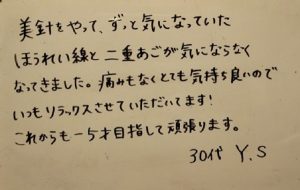 美針をやって、ずっと気になっていた
ほうれい線と二重あごが気にならなく
なってきました。痛みもなくとても気持ち良いので
いつもリラックスさせていただいてます!
これからも-5才目指して頑張ります。
30代 Y.S